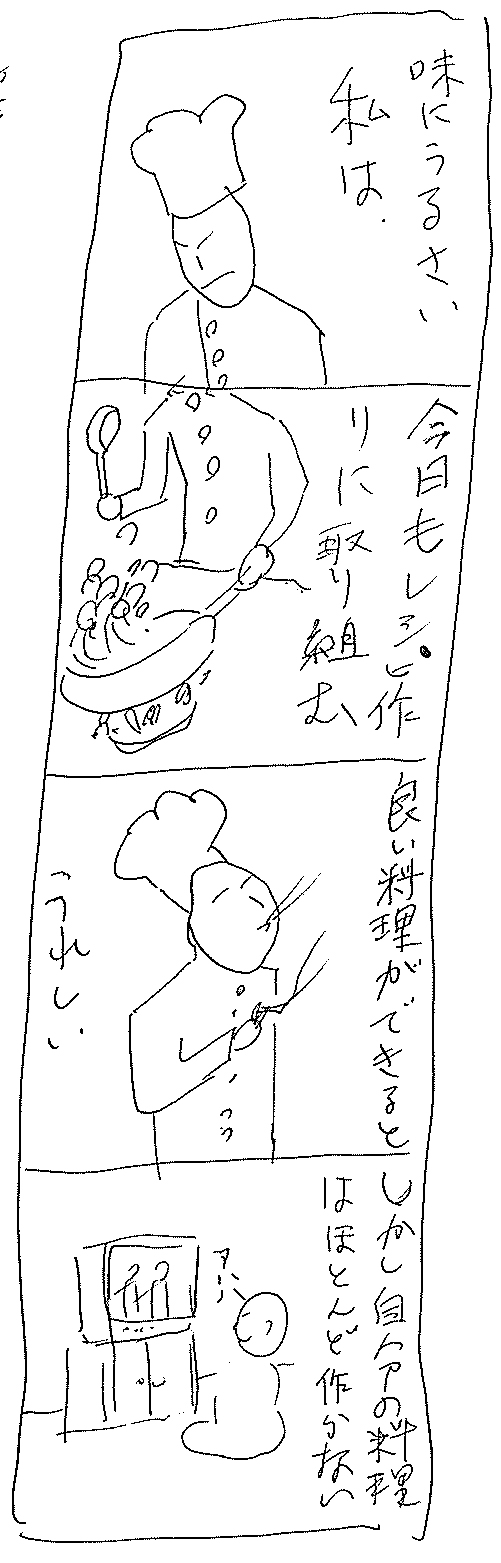 味にうるさい
私は.
今日もレシピ作
りに取り組む
良い料理ができると
うれしい
しかし自分の料理
はほとんど作らない
アハハ